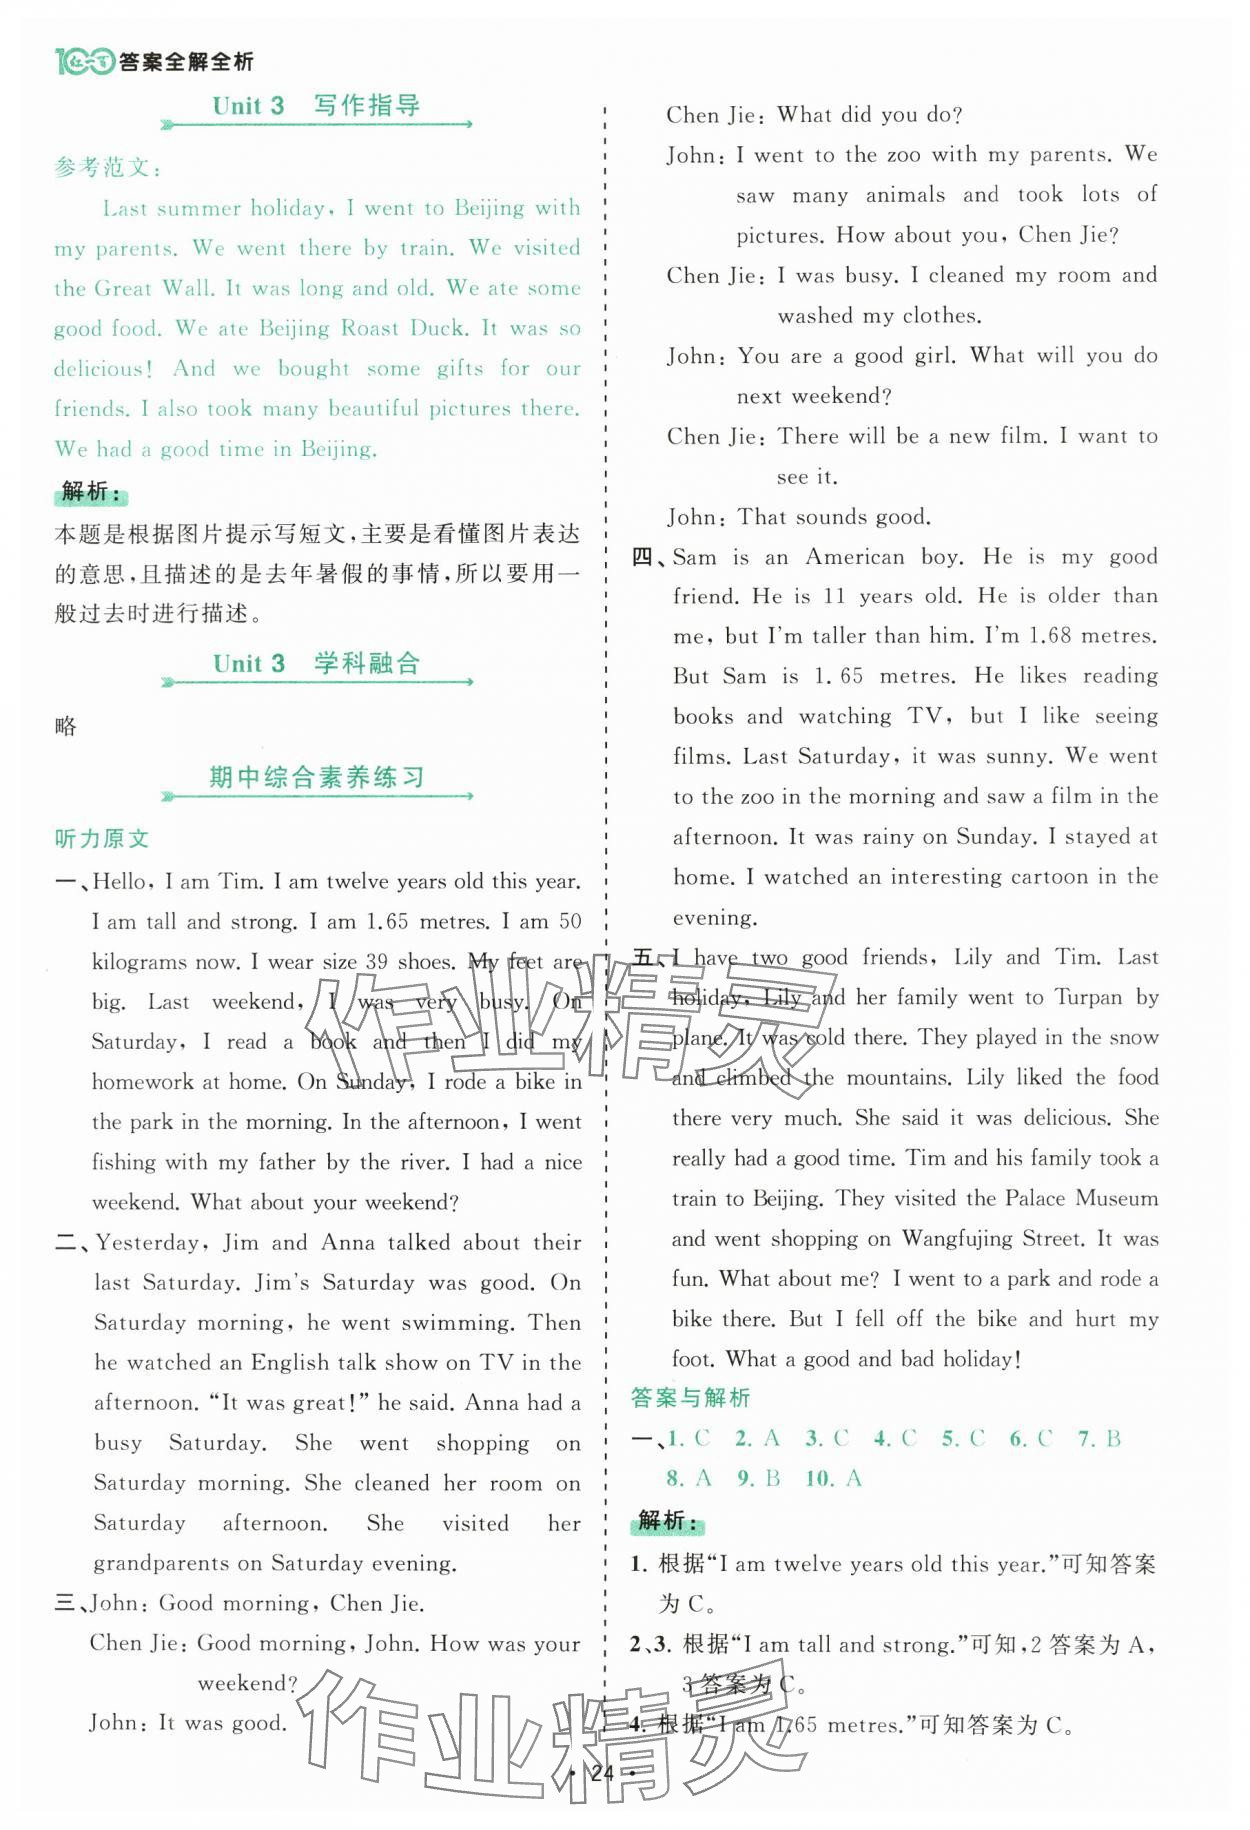 100 红一百 答案全解全析
Unit 3 写作指导
参考范文：
Last summer holiday, I went to Beijing with
my parents. We went there by train. We visited
the Great Wall. It was long and old. We ate some
good food. We ate Beijing Roast Duck. It was so
delicious! And we bought some gifts for our
friends. I also took many beautiful pictures there.
We had a good time in Beijing.
解析：
本题是根据图片提示写短文，主要是看懂图片表达
的意思，且描述的是去年暑假的事情，所以要用一
般过去时进行描述。
Unit 3 学科融合
略
期中综合素养练习
听力原文
一、Hello, I am Tim. I am twelve years old this year.
I am tall and strong. I am 1.65 metres. I am 50
kilograms now. I wear size 39 shoes. My feet are
big. Last weekend, I was very busy. On
Saturday, I read a book and then I did my
homework at home. On Sunday, I rode a bike in
the park in the morning. In the afternoon, I went
fishing with my father by the river. I had a nice
weekend. What about your weekend?
二、Yesterday, Jim and Anna talked about their
last Saturday. Jim's Saturday was good. On
Saturday morning, he went swimming. Then
he watched an English talk show on TV in the
afternoon. “It was great!” he said. Anna had a
busy Saturday. She went shopping on
Saturday morning. She cleaned her room on
Saturday afternoon. She visited her
grandparents on Saturday evening.
三、John: Good morning, Chen Jie.
Chen Jie: Good morning, John. How was your
weekend?
John: It was good.
Chen Jie: What did you do?
John: I went to the zoo with my parents. We
saw many animals and took lots of
pictures. How about you, Chen Jie?
Chen Jie: I was busy. I cleaned my room and
washed my clothes.
John: You are a good girl. What will you do
next weekend?
Chen Jie: There will be a new film. I want to
see it.
John: That sounds good.
四、Sam is an American boy. He is my good
friend. He is 11 years old. He is older than
me, but I'm taller than him. I'm 1.68 metres.
But Sam is 1.65 metres. He likes reading
books and watching TV, but I like seeing
films. Last Saturday, it was sunny. We went
to the zoo in the morning and saw a film in the
afternoon. It was rainy on Sunday. I stayed at
home. I watched an interesting cartoon in the
evening.
五、I have two good friends, Lily and Tim. Last
holiday, Lily and her family went to Turpan by
plane. It was cold there. They played in the snow
and climbed the mountains. Lily liked the food
there very much. She said it was delicious. She
really had a good time. Tim and his family took a
train to Beijing. They visited the Palace Museum
and went shopping on Wangfujing Street. It was
fun. What about me? I went to a park and rode a
bike there. But I fell off the bike and hurt my
foot. What a good and bad holiday!
答案与解析
一、1. C 2. A 3. C 4. C 5. C 6. C 7. B
8. A 9. B 10. A
解析：
1. 根据“I am twelve years old this year.”可知答案
为 C。
2、3. 根据“I am tall and strong.”可知，2 答案为 A，
3 答案为 C。
4. 根据“I am 1.65 metres.”可知答案为 C。
作业精灵
作业精灵
• 24 •